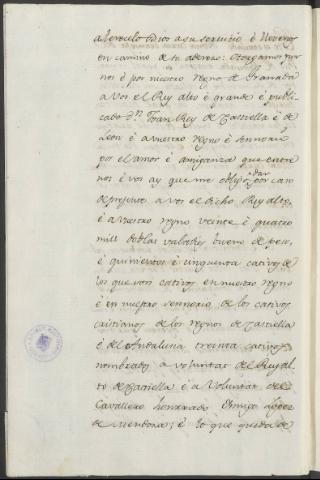 en camino de te aderezo: otorgamos por
nos é por nuestro regno de Granada
a Vos el Rey alto é grande é publi-
cado Dn. Joan Rey de Castiella é de
Leon é a vuestro regno é Sennorio
por el amor é amiganza que entre
nos é vos ay que me obligo a dar por can
de presente a vos el dicho Rey alto,
é a vuestro regno veinte é quatro
mill doblas valadies bueno de peso,
é quinientos é cinquenta cativos de
los que son cativos en nuestro regno
é en nuestro sennorio de los cativos
cristianos de los regnos de Castiella
é del Andaluna treinta cativos
nombrados a voluntat del Rey al-
to de Castiella é a Voluntat del
Cavallero honrrado Ennigo Lopez
de Mendoza; é lo que queda de